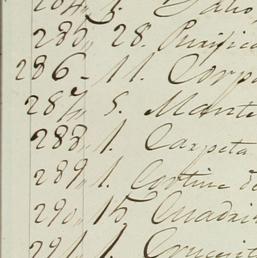 284 „ 1.
285 „ 28. Purific
286 - 11. Corp
287 „ 5. Mante
288 „ 1. Carpeta
289 „ 1. Cortina d
290 „ 15 Cuadri
291 „ 1. Crucet